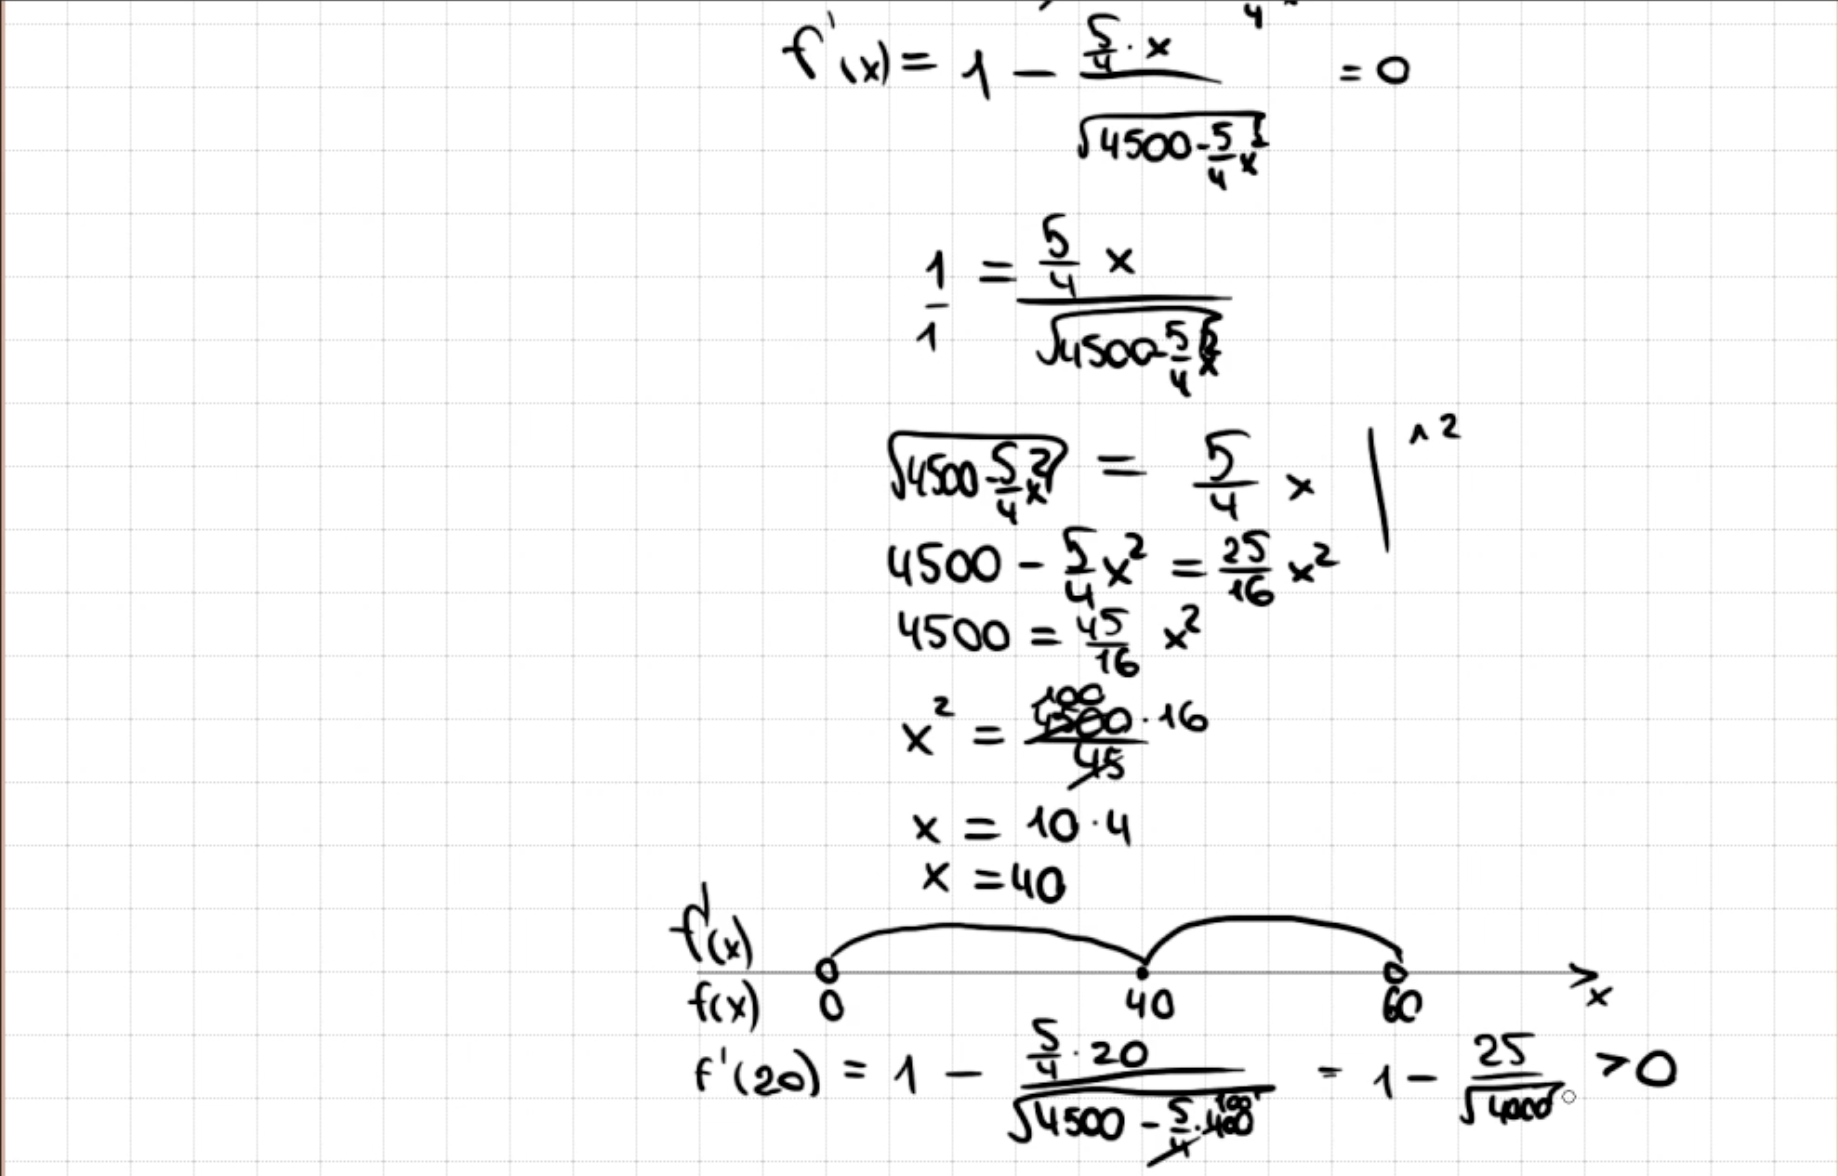 4
f'(x) = 1 - \frac{\frac{5}{4} \cdot x}{\sqrt{4500 - \frac{5}{4}x^2}} = 0
\frac{1}{1} = \frac{\frac{5}{4} x}{\sqrt{4500 - \frac{5}{4}x^2}}
\sqrt{4500 - \frac{5}{4}x^2} = \frac{5}{4} x | ^2
4500 - \frac{5}{4}x^2 = \frac{25}{16} x^2
4500 = \frac{45}{16} x^2
x^2 = \frac{\overset{100}{\cancel{4500}} \cdot 16}{\cancel{45}}
x = 10 \cdot 4
x = 40
f'(x)
f(x) 0 40 60 x
f'(20) = 1 - \frac{\frac{5}{4} \cdot 20}{\sqrt{4500 - \frac{5}{\cancel{4}} \cdot \overset{100}{\cancel{400}}}} = 1 - \frac{25}{\sqrt{4000}} > 0